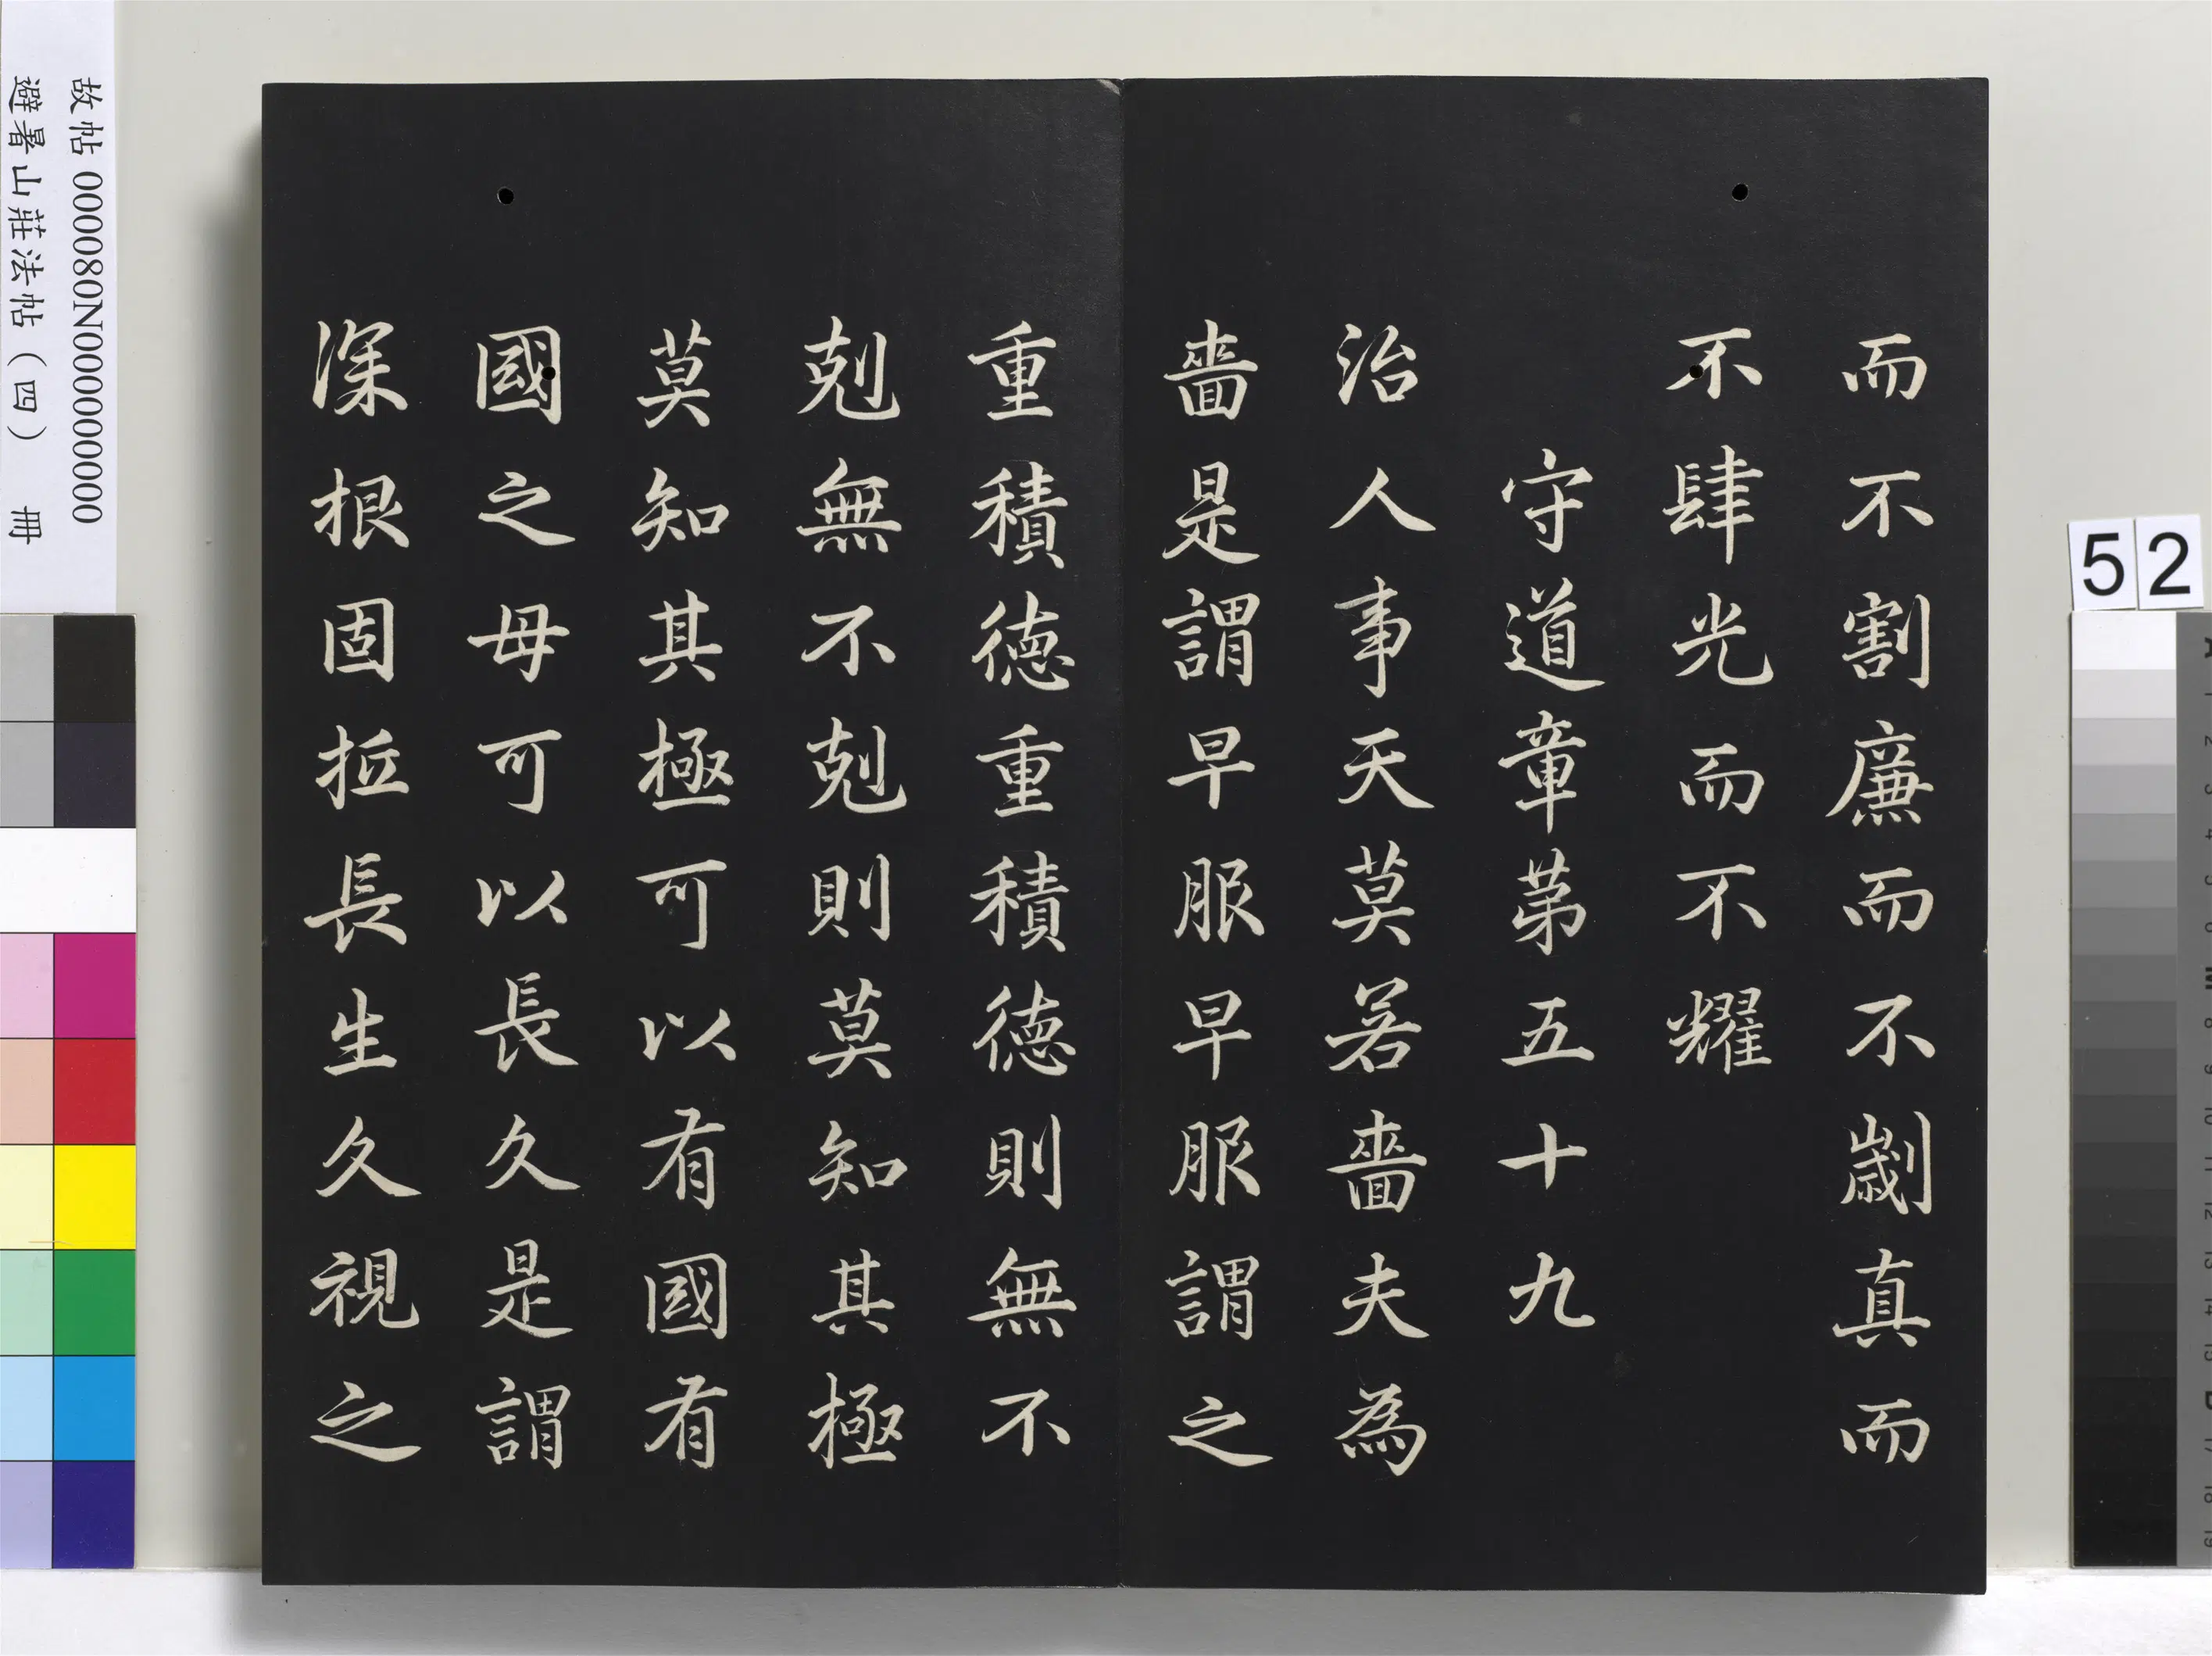 而不割廉而不劌真而
不肆光而不耀
守道章苐五十九
治人事天莫若嗇夫為
嗇是謂早服早服謂之
重積德重積德則無不
剋無不剋則莫知其極
莫知其極可以有國有
國之母可以長久是謂
深根固抵長生久視之
故帖 000080N000000000
避暑山莊法帖（四） 冊
52